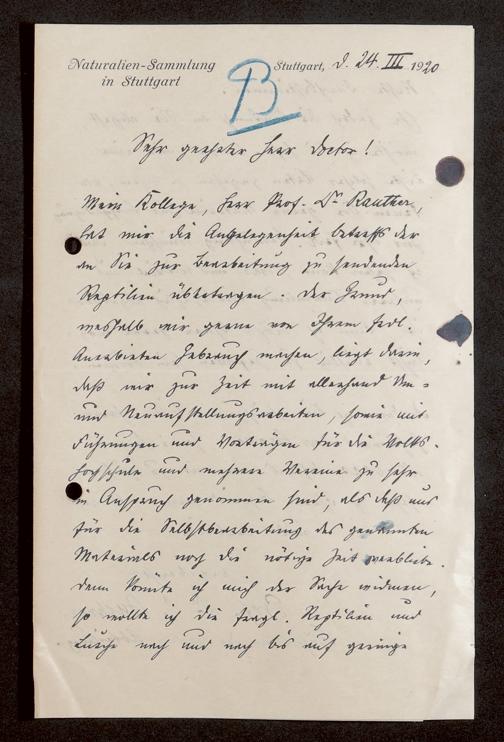 Naturalien-Sammlung
in Stuttgart
Stuttgart, d. 24. III 1920
B
Sehr geehrter Herr Doctor!
Mein Kollege, Herr Prof. Dr Rauther,
hat mir die Angelegenheit betreffs der
an Sie zur Bearbeitung zu sendenden
Reptilien übertragen. Der Grund,
weshalb wir gerne von Ihrem frdl.
Anerbieten Gebrauch machen, liegt darin,
daß wir zur Zeit mit allerhand Um-
und Neuaufstellungsarbeiten, sowie mit
Führungen und Vorträgen für die Volks-
hochschule und mehrere Vereine zu sehr
in Anspruch genommen sind, als daß uns
für die Selbstbearbeitung des genannten
Materials noch die nötige Zeit verbliebe.
Denn könnte ich mich der Sache widmen,
so wollte ich die fragl. Reptilien und
Lurche nach und nach bis auf geringe